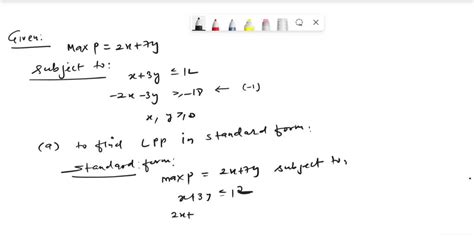 Given:
Max P = 2x+7y
subject to:
x+3y ≤ 12
-2x-3y ≥ -18 ← (-1)
x, y ≥ 0
(a) to find LPP in standard form:
standard form:
max P = 2x+7y subject to,
x+3y ≤ 12
2x+